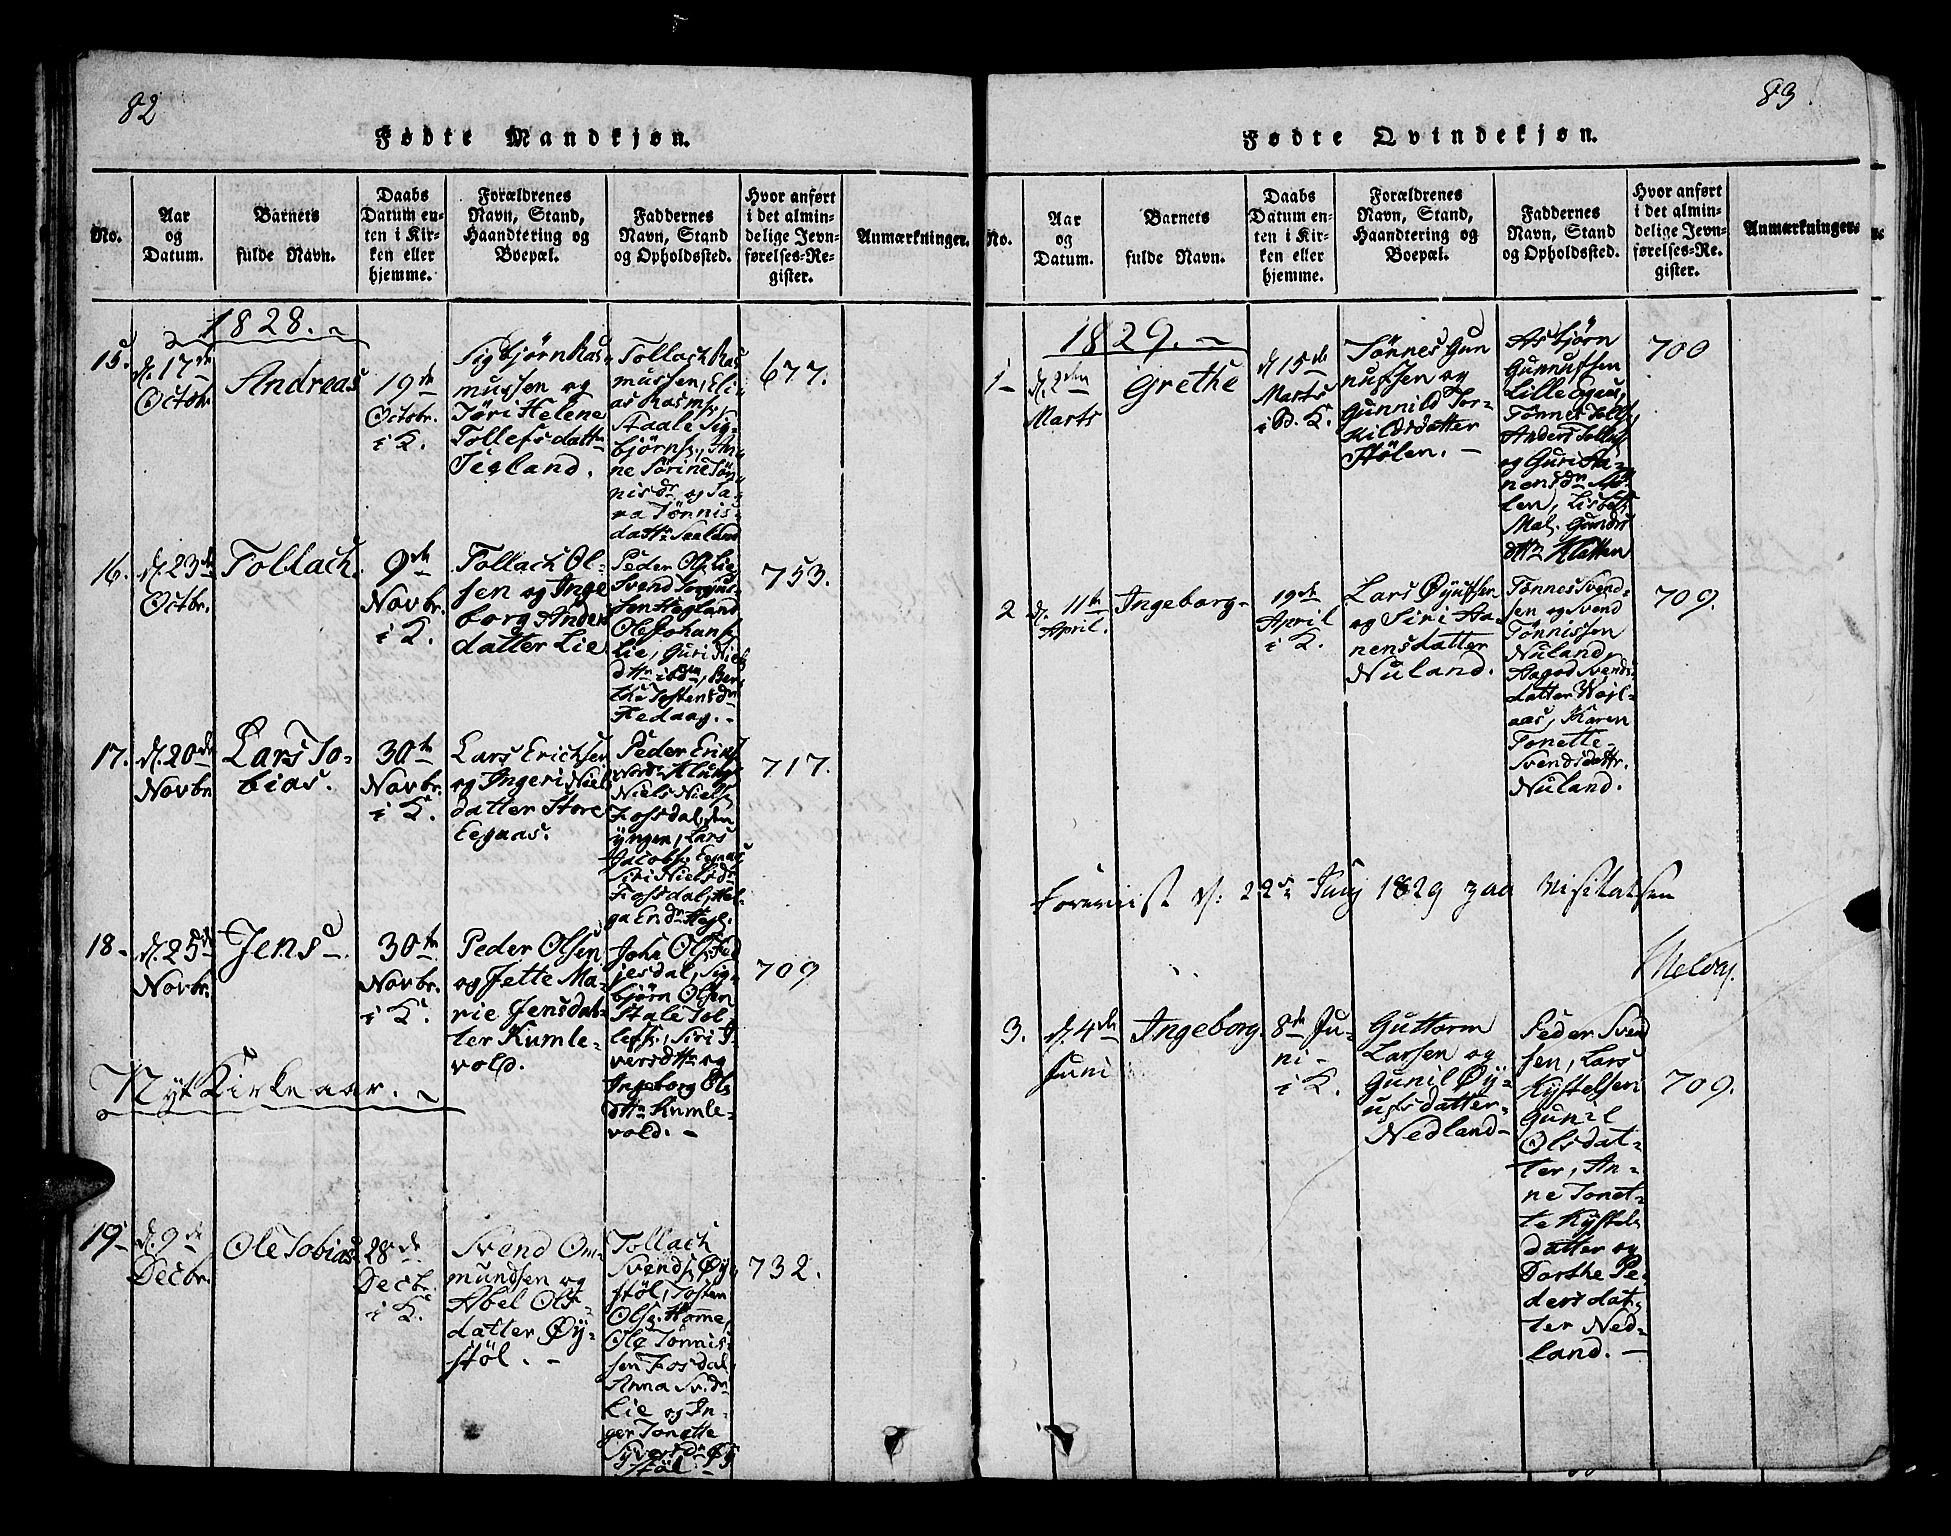 82
Fødte Mandkjøn.
No.
Aar
og
Datum.
Barnets
fulde Navn.
Daabs
Datum en-
ten i Kir-
ken eller
hjemme.
Forældrenes
Navn, Stand,
Haandtering og
Boepæl.
Faddernes
Navn, Stand
og Opholdssted.
Hvor anført
i det almin-
delige Jevn-
førelses-Re-
gister.
Anmærkninger.
1828.
15.
d. 17de
Octobr.
Andreas
19de
Octobr.
i K.
Sigbjørn Ras
mussen og
Jøri Helene
Tollefsdattr
Segland.
Tollach Ras
mussen, Eli
as Rasmss,
Staale Sig-
bjørns., An
ne Sørine Tøn
nisdr og Sa-
ra Tønnis
dattr Seeland
677.
16.
d. 23de
Octbr.
Tollach.
9de
Novbr.
i K.
Tollach Ol-
sen og Inge
borg Anders
datter Lie
Peder Ols. Lie
Svend
sen Hegland
Ole Johans.
Lie, Guri Niels
dttr ibdm, Ber
the Tostensdr
Fedaag. -
753.
17.
d. 20de
Novbr
Lars To-
bias.
30te
Novbr.
i K.
Lars Erichsen
og Ingeri Niels
datter Store
Eegaas.
Peder Erich
Niels Niels.
Fossdal, den
yngen, Lars
Jacobs. Eegaas
Siri Nielsdr
Fossdal, Hel-
ga Er.dr Hegl.
717.
18-
d. 25de
Novbr.
Jens.
30te
Novbr.
i K.
Peder Olsen
og Jette Ma-
rie Jensdat-
ter Kumle-
vold.
Johs Ols. Fed
jesdal, Sig-
bjørn Olsen
Stale Tol-
lefs., Siri I-
versdttr og
Ingeborg Ols
dttr Kumle-
vold. -
709
Nyt Kirkeaar.
19-
d. 9de
Decbr.
Ole Tobias.
28de
Decbr.
i K.
Svend Om-
mundsen og
Abel Ols-
datter Øy-
støl. -
Tollach
Svends. Øy
støl, Tosten
Olsg. Homme,
Ole Tønnis-
sen Fosdal
Anna Sv.dr
Lie og In-
ger Tonette
Syversdr Øy
støl -
732.
83
Fødte Qvindekjøn.
No.
Aar
og
Datum.
Barnets
fulde Navn.
Daabs
Datum en-
ten i Kir-
ken eller
hjemme.
Forældrenes
Navn, Stand,
Haandtering og
Boepæl.
Faddernes
Navn, Stand
og Opholdssted.
Hvor anført
i det almin-
delige Jevn-
førelses-Re-
gister.
Anmærkninger.
1829.
1-
d. 2den
Marts
Grethe
d 15de
Marts
i B. K.
Tønnes Gun
nufsen og
Gunnild Tor-
kildsdatter
Stølen. -
Asbjørn
Gunnufsen
Lille Egeas,
Tønnes Tolls.
Anders Tolluf
og Guri Aa-
nensdr Mø-
len, Lisbeth
Mal. Gunds
dttr Klatten
700
2
d. 11te
April.
Ingeborg-
19de
April
i K.
Lars Øyufsen
og Siri Aa-
nensdatter
Nuland.
Tønnes Svend-
sen og Svend
Tønnissen
Nuland,
Aagod Svends-
datter
aas, Karen
Tonette-
Svendsdattr.
Nuland.
709.
Foreviist d: 22de Junj 1829 paa Visitatsen
3.
d. 4de
Juni
Ingeborg.
8de Ju-
ni -
i K.
Guttorm
Larsen og
Gunil Øy-
ufsdatter-
Nedland-
Peder Svend
sen, Lars
Kystelsen
Gunil
Olsdat-
ter, An-
ne Tonet-
te Kystels
datter og
Dorthe Pe-
dersdat-
ter Ned-
land. -
709.